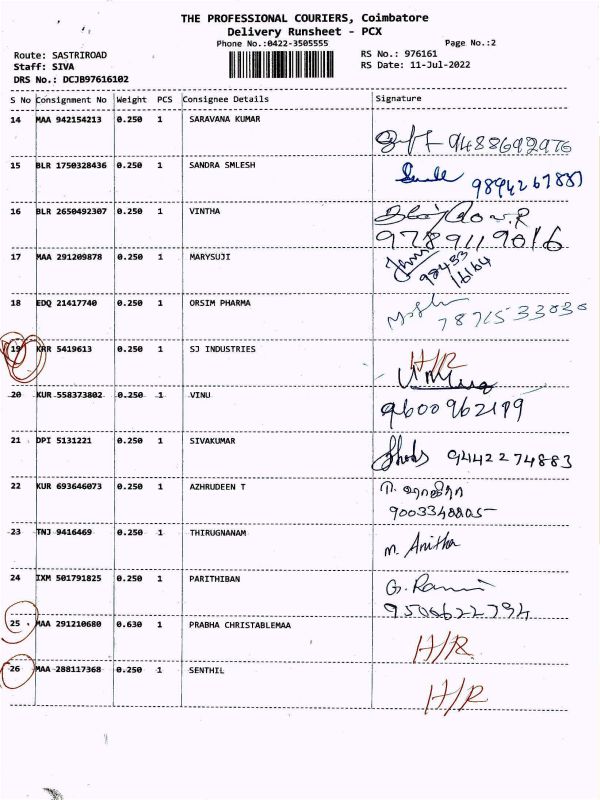 THE PROFESSIONAL COURIERS, Coimbatore
Delivery Runsheet - PCX
Phone No.:0422-3505555 Page No.:2
Route: SASTRIROAD RS No.: 976161
Staff: SIVA RS Date: 11-Jul-2022
DRS No.: DCJB97616102
S No Consignment No Weight PCS Consignee Details Signature
14 MAA 942154213 0.250 1 SARAVANA KUMAR
9488692976
15 BLR 1750328436 0.250 1 SANDRA SMLESH
16 BLR 2650492307 0.250 1 VINTHA
9789119016
17 MAA 291209878 0.250 1 MARYSUJI
98433
16164
18 EDQ 21417740 0.250 1 ORSIM PHARMA
7871533030
19 KRR 5419613 0.250 1 SJ INDUSTRIES H/R
20 KUR 558373802 0.250 1 VINU
9600962199
21 DPI 5131221 0.250 1 SIVAKUMAR
9442274883
22 KUR 693646073 0.250 1 AZHRUDEEN T
23 TNJ 9416469 0.250 1 THIRUGNANAM
M. Anitha
24 IXM 501791825 0.250 1 PARITHIBAN
9506622794
25 MAA 291210680 0.630 1 PRABHA CHRISTABLEMAA
H/R
26 MAA 288117368 0.250 1 SENTHIL
H/R